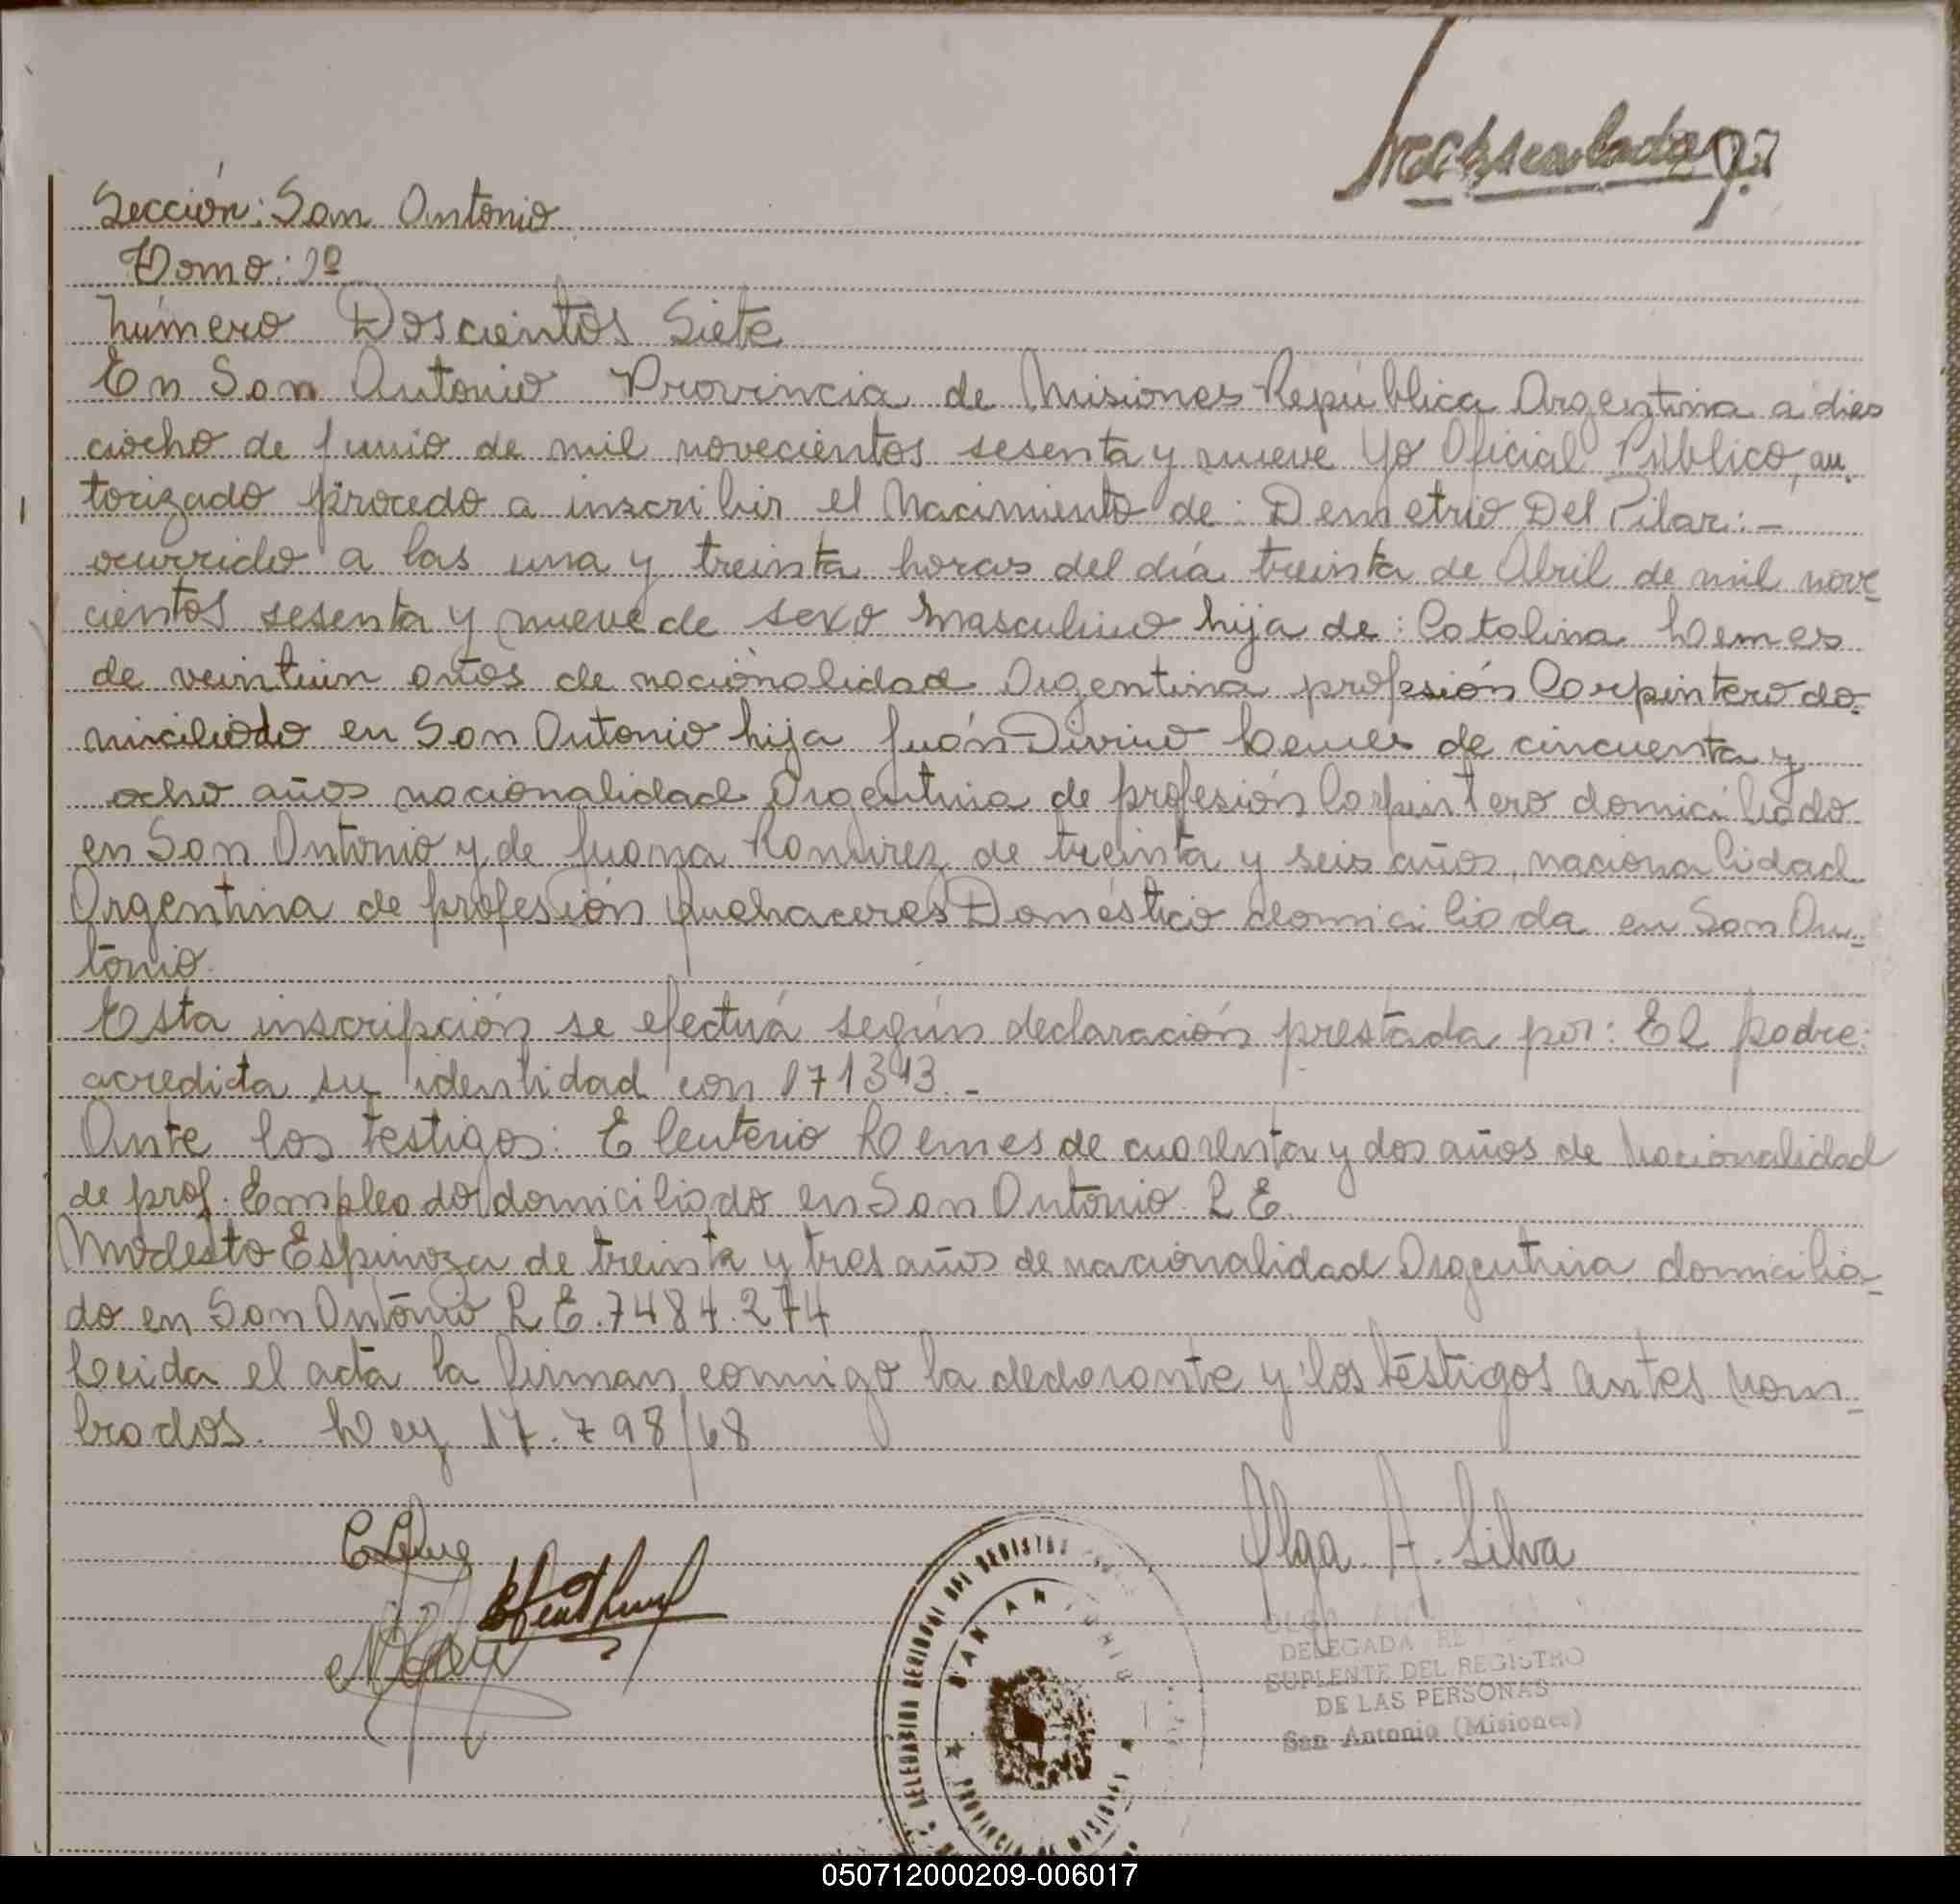 Sección: San Antonio
Tomo: 1º
Número Doscientos Siete
En San Antonio Provincia de Misiones República Argentina a dies
ciocho de Junio de mil novecientos sesenta y nueve Yo Oficial Público, au-
torizado procedo a inscribir el Nacimiento de: Demetrio Del Pilar: -
ocurrido a las una y treinta horas del día treinta de Abril de mil nove-
cientos sesenta y nueve de sexo Masculino hija de: Catalina Lemes
de veintiun años de nacionalidad Argentina profesión Carpintero do-
miciliado en San Antonio hija Juán Divino Lemes de cincuenta y
ocho años nacionalidad Argentina de profesión Carpintero domiciliado
en San Antonio y de Juana Ramirez de treinta y seis años, nacionalidad
Argentina de profesión Quehaceres Doméstico domiciliada en San An-
tonio.
Esta inscripción se efectuá según declaración prestada por: El padre:
acredita su identidad con 171343. -
Ante los testigos: Eleuterio Lemes de cuarenta y dos años de Nacionalidad
de prof. Empleado domiciliado en San Antonio L E.
Modesto Espinoza de treinta y tres años de nacionalidad Argentina domicilia-
do en San Antonio L E. 7484.274
Leida el acta la firman conmigo la declarante y los téstigos antes nom-
brados. Ley 17.798/68
Olga A. Silva
DELEGACION REGIONAL DEL REGISTRO
SAN ANTONIO
PROVINCIA DE MISIONES
DELEGADA
SUPLENTE DEL REGISTRO
DE LAS PERSONAS
San Antonio (Misiones)
050712000209-006017